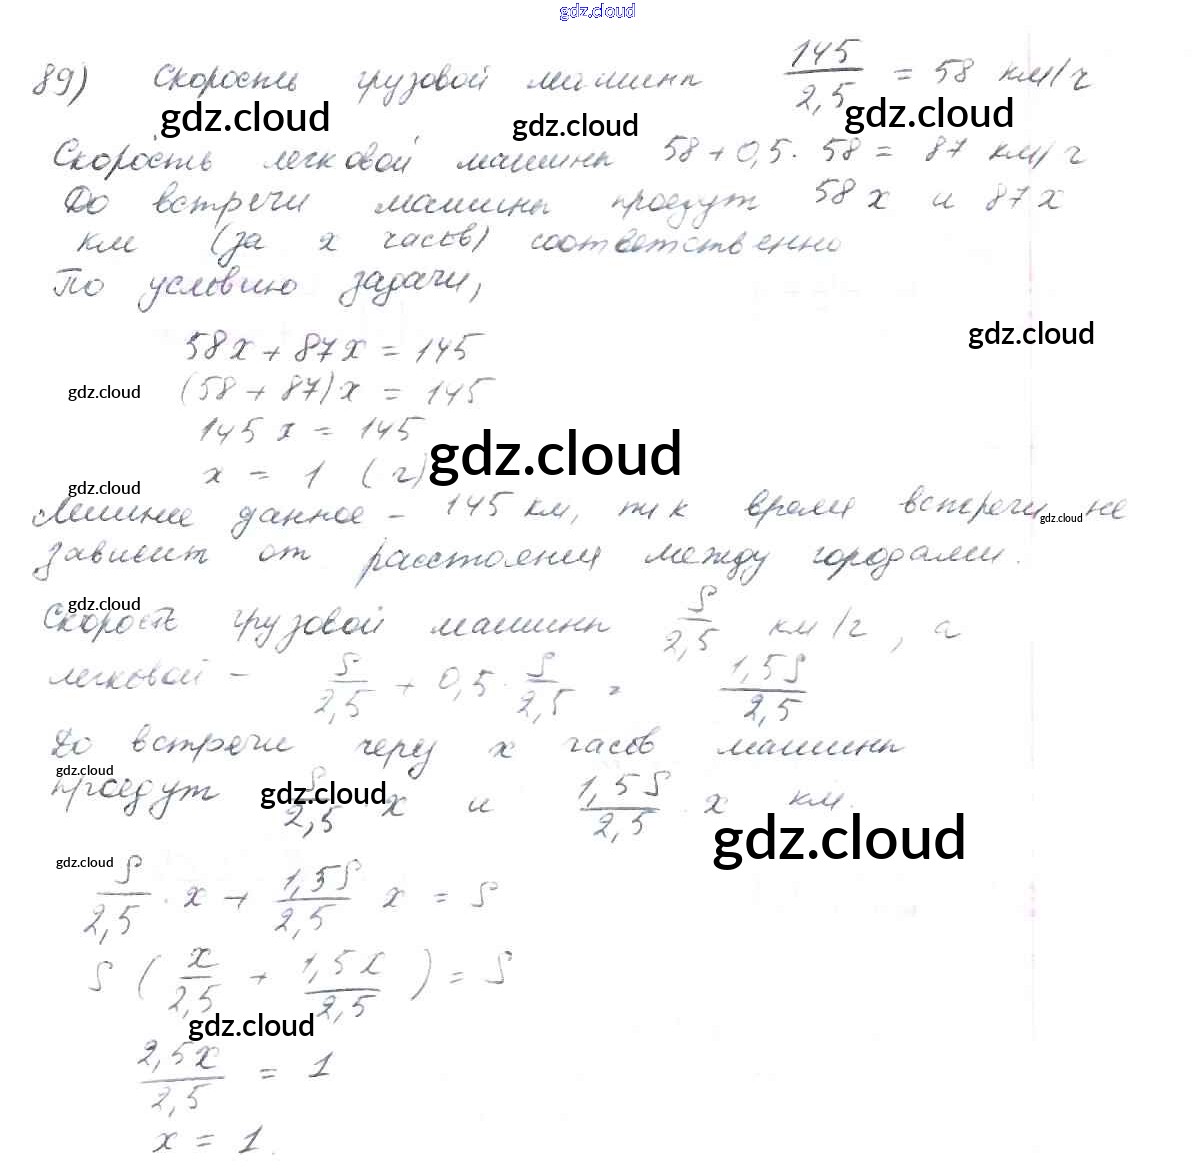 gdz.cloud
89) Скорость грузовой машины 145/2,5 = 58 км/ч
gdz.cloud gdz.cloud gdz.cloud
Скорость легковой машины 58 + 0,5 · 58 = 87 км/ч
До встречи машины проедут 58x и 87x
км (за x часов) соответственно
По условию задачи,
58x + 87x = 145
gdz.cloud
gdz.cloud (58 + 87)x = 145
145x = 145
gdz.cloud
x = 1 (ч)
gdz.cloud
Лишнее данное – 145 км, т.к время встречи не
gdz.cloud
зависит от расстояния между городами.
gdz.cloud
Скорость грузовой машины S/2,5 км/ч, а
легковой – S/2,5 + 0,5 · S/2,5 = 1,5S/2,5
До встречи через x часов машины
gdz.cloud
проедут S/2,5 x и 1,5S/2,5 x км.
gdz.cloud
gdz.cloud
gdz.cloud
S/2,5 · x + 1,5S/2,5 x = S
S (x/2,5 + 1,5x/2,5) = S
gdz.cloud
2,5x/2,5 = 1
x = 1.